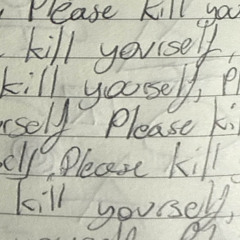 Please kill you
kill yourself,
kill yourself, Pl
rself Please ki
Please kill
kill yourself,